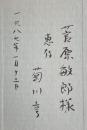 菅原敏郎様
恵存
菊川
一九八七年一月十三日